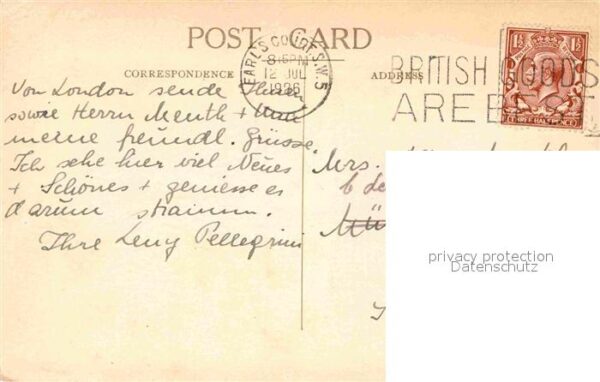 POST CARD
CORRESPONDENCE
ADDRESS
EARL'S COURT. S.W.5
8.15PM
12 JUL
1926
BRITISH GOODS
ARE BEST
1½ 1½
THREE HALFPENCE
Von London sende Ihnen
sowie Herrn Menth +
meine freundl. Grüsse.
Ich sehe hier viel Neues
+ Schönes + geniesse es
darum
Ihre Leny Pellegrini
Mrs.
privacy protection
Datenschutz